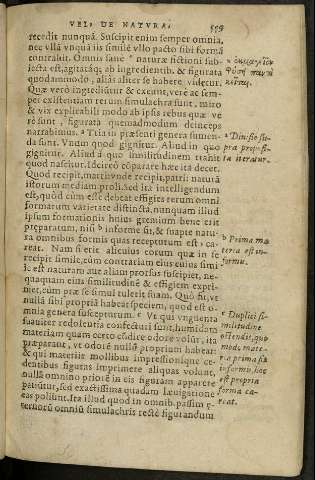 VEL, DE NATVRA. 559
recedit nunquã. Suscipit enim semper omnia,
nec vllã vnquã iis similẽ vllo pacto sibi formã
contrahit. Omnis sanè naturæ fictioni sub-
iecta est, agitatáq; ab ingredientib. & figurata
quodammodo, aliàs aliter se habere videtur.
Quæ verò ingrediũtur & exeunt, verè ac sem-
per existentiam rerum simulachra sunt. miro
& vix explicabili modo ab ipsis rebus quæ ve
rè sunt, figurata quemadmodum deinceps
narrabimus. ª Tria in præsenti genera sumen-
da sunt. Vnum quod gignitur. Aliud in quo
gignitur. Aliud à quo similitudinem trahit
quod nascitur. Idcirco cõparare hæc ita decet.
Quod recipit, matri: vnde recipit, patri: naturã
istorum mediam proli. Sed ita intelligendum
est, quòd cùm esse debeat effigies rerum omni
formarum varietate distincta, nunquam illud
ipsum formationis huius gremium bene erit
præparatum, nisi b informe sit, & suapte natu-
ra omnibus formis quas recepturum est, ca-
reat. Nam si ete alicuius eorum quæ in se
recipit simile, cùm contrariam eius cuius simi
le est naturam aut aliam prorsus suscipiet, ne-
quaquam eius similitudinẽ & effigiem expri-
met, cùm præ se simul tulerit suam. Quò fit, vt
nullã sibi propriã habeat speciem, quod est o-
mnia genera suscepturum. c Vt qui vnguenta
suauiter redolentia confecturi sunt, humidam
materiam quam certo cõdire odore volũt, ita
præparant, vt odorẽ nullũ proprium habeat:
& qui materiis mollibus impressioniq́ue ce-
dentibus figuras imprimere aliquas volunt,
nullã omnino priorẽ in eis figuram apparere
patiũtur, sed exactissima quadam læuigatione
eas poliũt. Ita illud quod in omnib. passim æ-
ternorũ omniũ simulachris rectè figurandum
a Diuisio su-
pra proposi-
ta iteratur.
b Prima ma
teria est in-
formis.
c Duplici si-
militudine
ostendit, quo
modo mate-
ria prima sit
informis, hoc
est propria
forma ca-
reat.